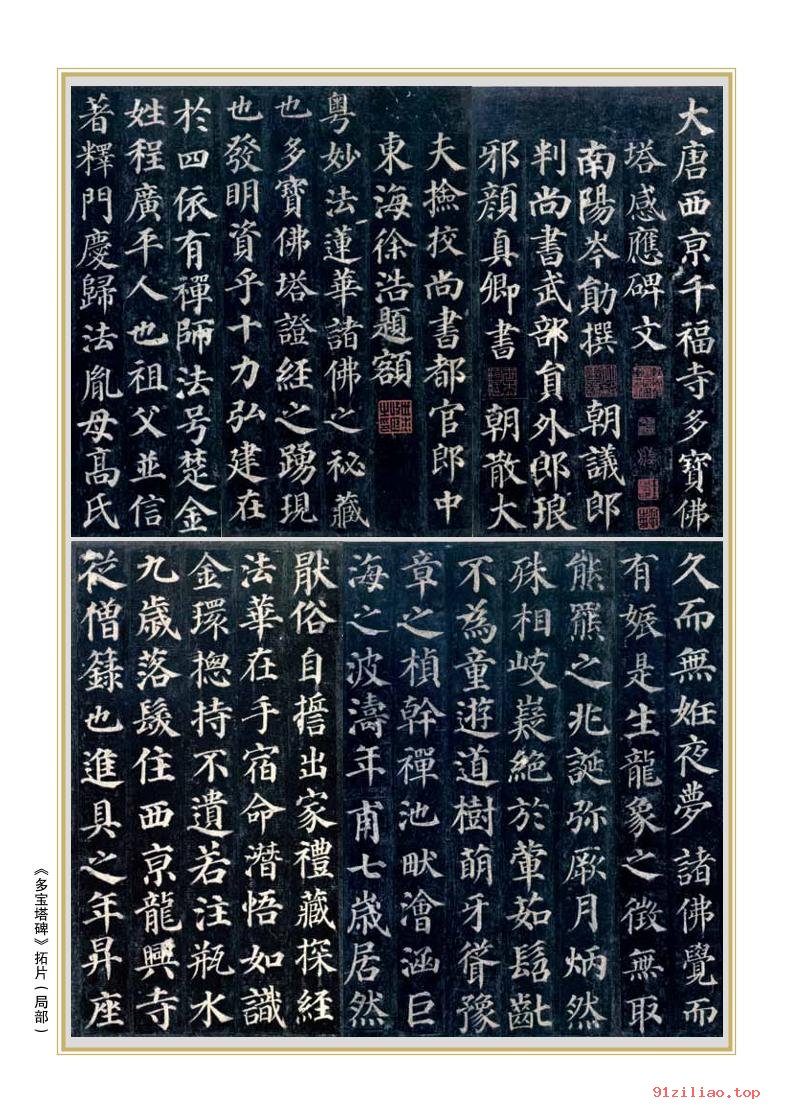 大唐西京千福寺多寶佛
塔感應碑文
南陽岑勛撰 朝議郎
判尚書武部員外郎琅
邪顏真卿書 朝散大
夫撿挍尚書都官郎中
東海徐浩題額
粵妙法蓮華諸佛之秘藏
也多寶佛塔證經之踴現
也發明資乎十力弘建在
於四依有禪師法号楚金
姓程廣平人也祖父並信
著釋門慶歸法胤母高氏
久而無姙夜夢諸佛覺而
有娠是生龍象之徵無取
熊羆之兆誕弥厥月炳然
殊相岐嶷絕於葷茹髫齔
不為童遊道樹萌牙聳豫
章之楨幹禪池畎澮涵巨
海之波濤年甫七歲居然
猒俗自誓出家禮藏探經
法華在手宿命潛悟如識
金環揔持不遺若注瓶水
九歲落髮住西京龍興寺
從僧籙也進具之年昇座
《多宝塔碑》拓片(局部)
91ziliao.top